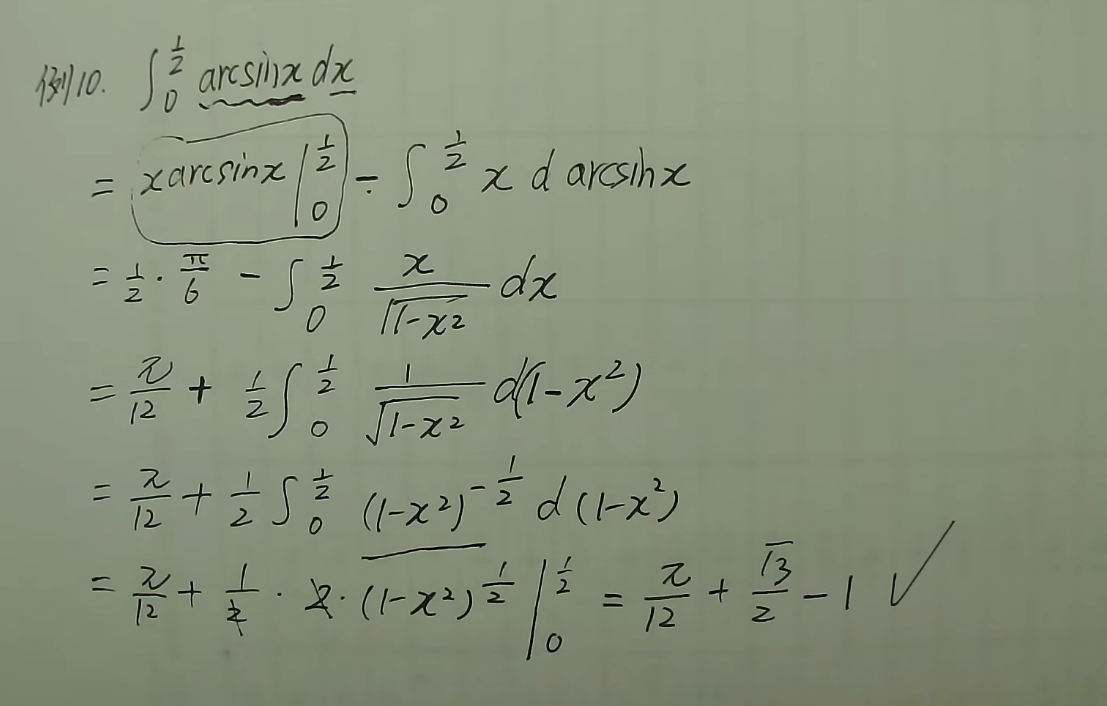 例10. ∫₀^{1/2} arcsinx dx
= xarcsinx |₀^{1/2} - ∫₀^{1/2} x d arcsinx
= 1/2 · π/6 - ∫₀^{1/2} x/√(1-x²) dx
= π/12 + 1/2 ∫₀^{1/2} 1/√(1-x²) d(1-x²)
= π/12 + 1/2 ∫₀^{1/2} (1-x²)^{-1/2} d(1-x²)
= π/12 + 1/2 · 2 · (1-x²)^{1/2} |₀^{1/2} = π/12 + √3/2 - 1 ✓